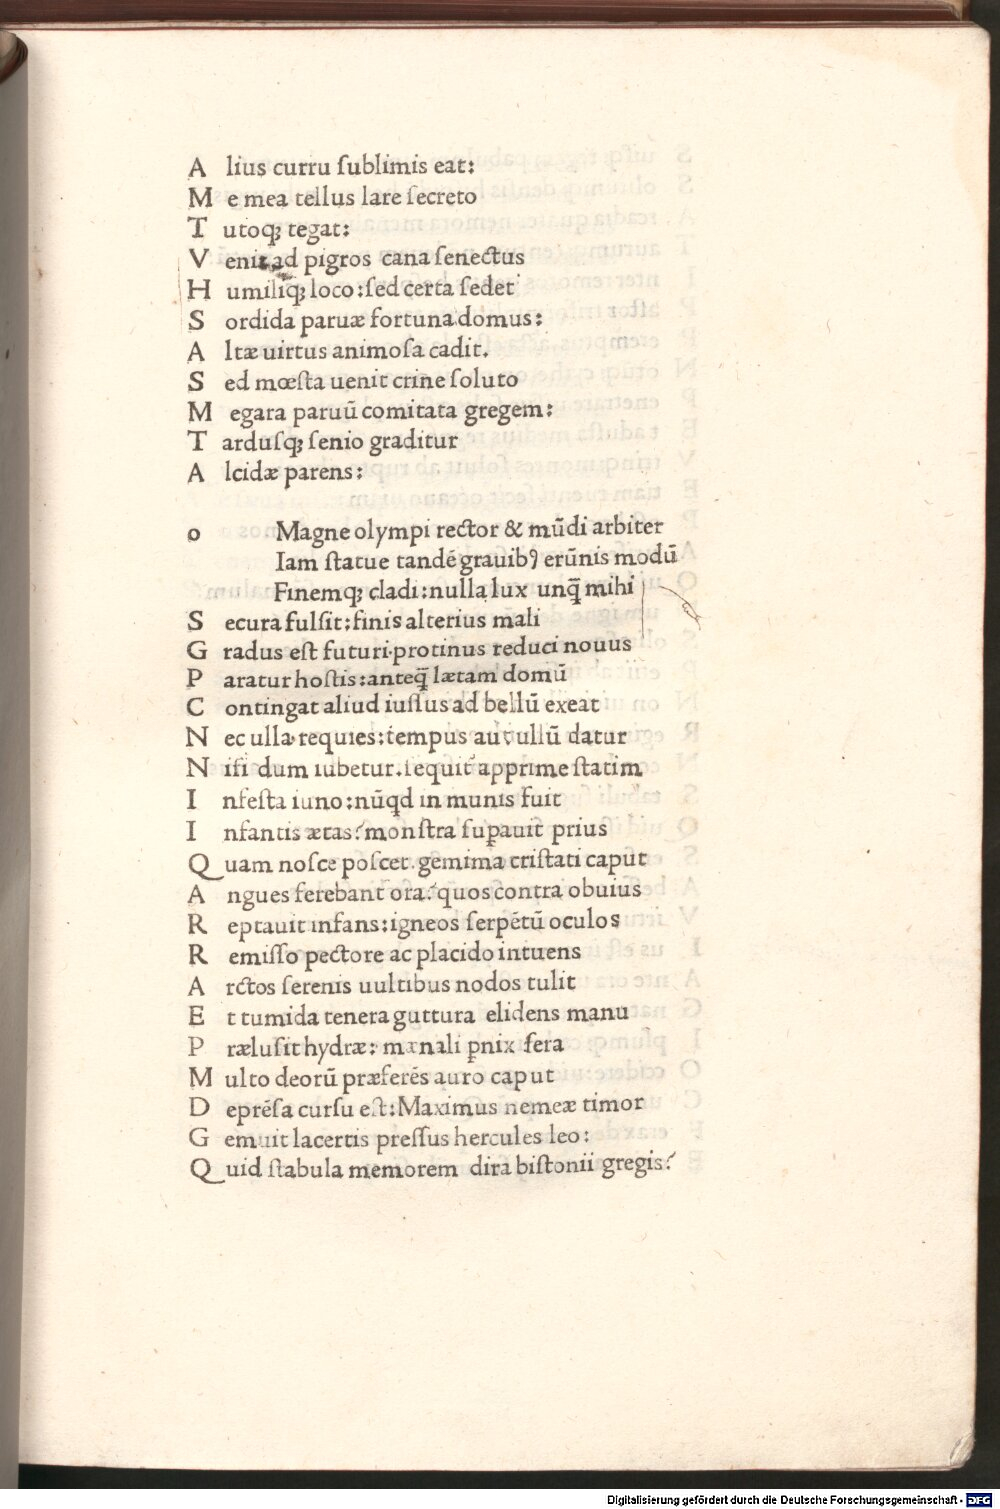 A lius curru ſublimis eat:
M e mea tellus lare ſecreto
T utoqꝫ tegat:
V enit ad pigros cana ſenectus
H umiliqꝫ loco: ſed certa ſedet
S ordida paruæ fortuna domus:
A ltæ uirtus animoſa cadit.
S ed mœſta uenit crine ſoluto
M egara paruū comitata gregem:
T arduſqꝫ ſenio graditur
A lcidæ parens:
o Magne olympi rector & mūdi arbiter
Iam ſtatue tandē grauibꝰ erūnis modū
Finemqꝫ cladi: nulla lux unq̄ mihi
S ecura fulſit: finis alterius mali
G radus eſt futuri. protinus reduci nouus
P aratur hoſtis: anteq̄ lætam domū
C ontingat aliud iuſſus ad bellū exeat
N ec ulla requies: tempus aut ullū datur
N iſi dum iubetur. ſequit᷑ apprime ſtatim
I nfeſta iuno: nūqd in munis fuit
I nfantis ætas? monſtra ſuꝑauit prius
Q uam noſce poſcet. gemima criſtati caput
A ngues ferebant ora? quos contra obuius
R eptauit infans: igneos ſerpētū oculos
R emiſſo pectore ac placido intuens
A rctos ſerenis uultibus nodos tulit
E t tumida tenera guttura elidens manu
P ræluſit hydræ: mænali ꝑnix fera
M ulto deorū præferēs auro caput
D eprēſa curſu eſt: Maximus nemeæ timor
G emuit lacertis preſſus hercules leo:
Q uid ſtabula memorem dira biſtonii gregis?
Digitalisierung gefördert durch die Deutsche Forschungsgemeinschaft - DFG